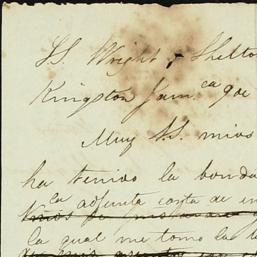 SS. Wright & Shelto
Kingston Jam.ca 9 de
Muy SS. mios
ha tenido la bonda
la adjunta carta de
la qual me tomo la